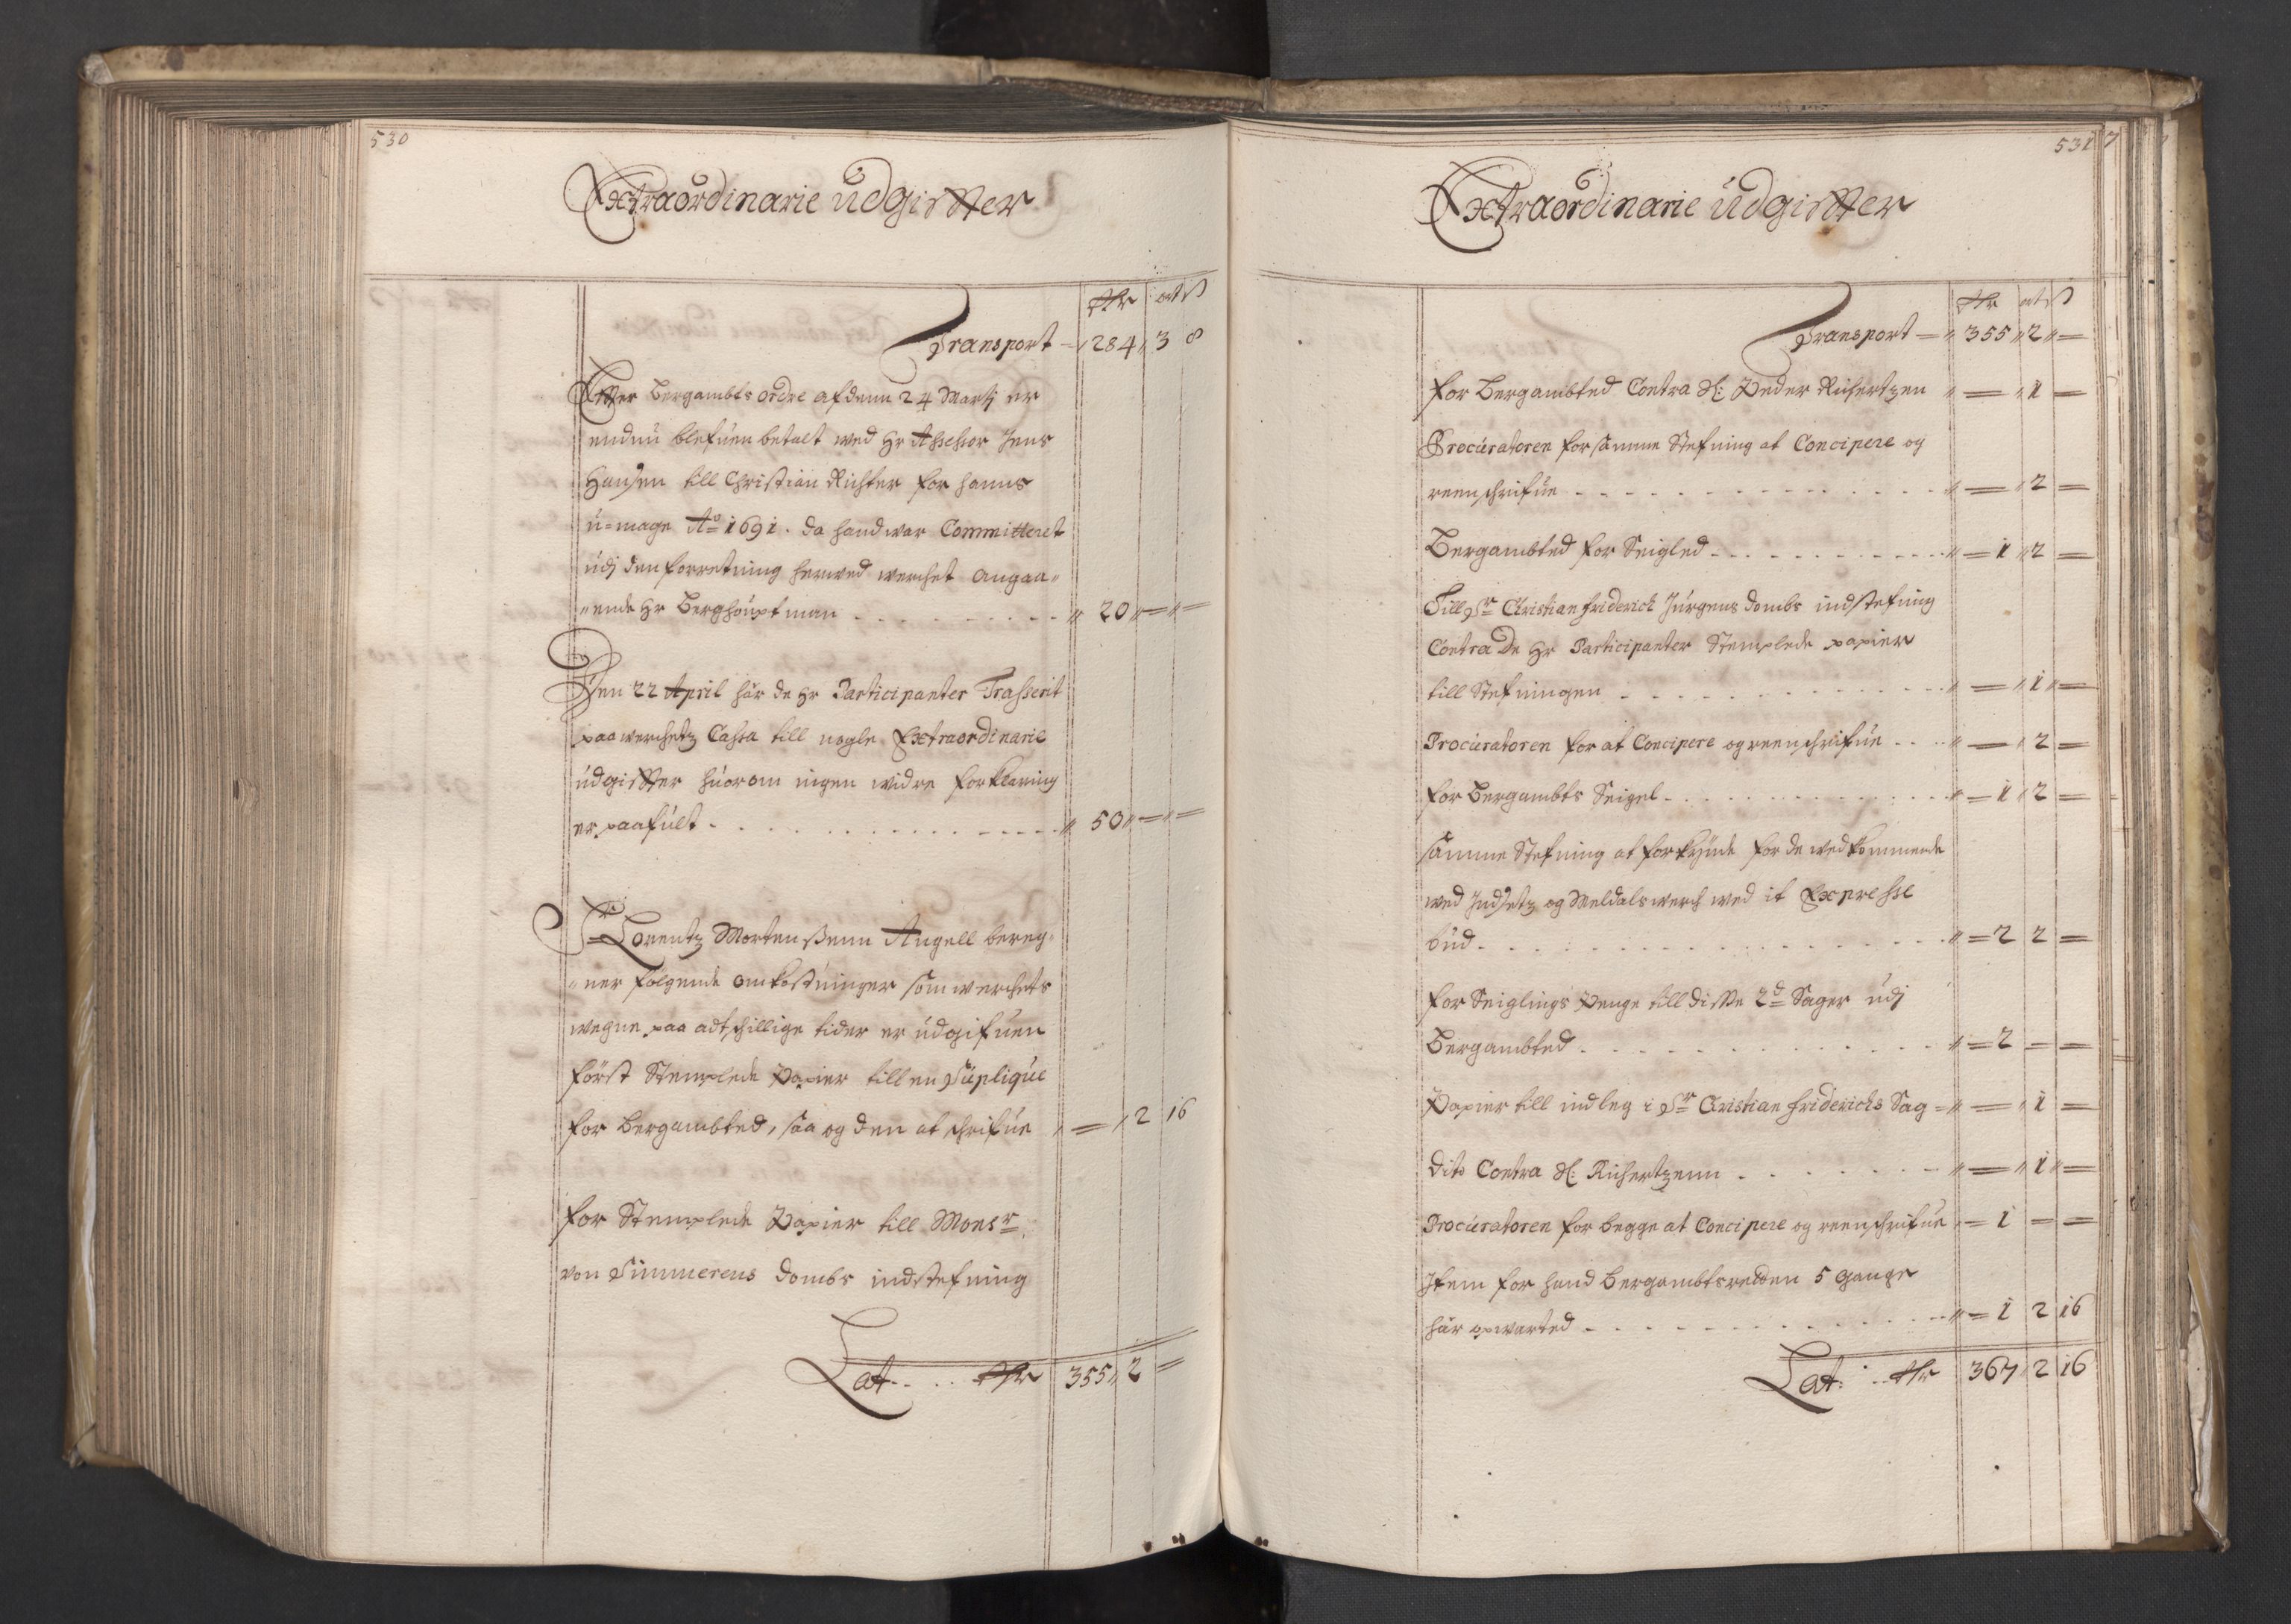 530
Extraordinarie Udgiffter
Rdr ort ß
Transport 284 3 8
Effter Bergambts ordre af denn 24 Martj er
endnu blefuen betalt wed Hr Assessor Jens
Hansen till Christian Richter for hanns
U-mage Ao 1691. da hand war Committeret
udj den forretning herwed werchet angaa-
ende Hr Berghouptman 20
Den 22 April har de Hr Participanter Trasserit
paa werchetz Cassa till nogle Extraordinarie
udgiffter huorom ingen widre forklaring
er paafult 50
Sr Lorentz Mortenssenn Angell bereg-
ner følgende omkostninger som werchets
wegne paa adtschillige tider er udgifuen
først Stemplede Papier till en Suplique
for Bergambted, saa og den at schrifue 2 16
for Stemplede Papier till Monsr
von Simmerens dombs indstefning
Lat Rdr 355 2
531
Extraordinarie Udgiffter
Rdr ort ß
Transport 355 2
for Bergambted Contra Sl: Peder Richertzen 1
Procuratoren for samme Stefning at Concipere og
reenschrifue 2
Bergambted for Seigled 1 2
Till Sr Christian Friderich Jürgens dombs indstefning
Contra De Hr Participanter Stemplede papier
till Stefningen 1
Procuratoren for at Concipere og reenschrifue 2
for Bergambts Seigel 1 2
samme Stefning at forkynde for de wedkommende
wed Indsetz og Meldalswerch wed it Expresse
bud 2 2
for Seiglings Penge till disse 2de Sager udj
Bergambted 2
Papier till indleg i Sr Christian Friderichs Sag 1
dito Contra Sl: Richertzenn 1
Procuratoren for begge at Concipere og reenschrifue 1
Item for hand Bergambtsretten 5 gange
har opwarted 1 2 16
Lat: Rdr 367 2 16